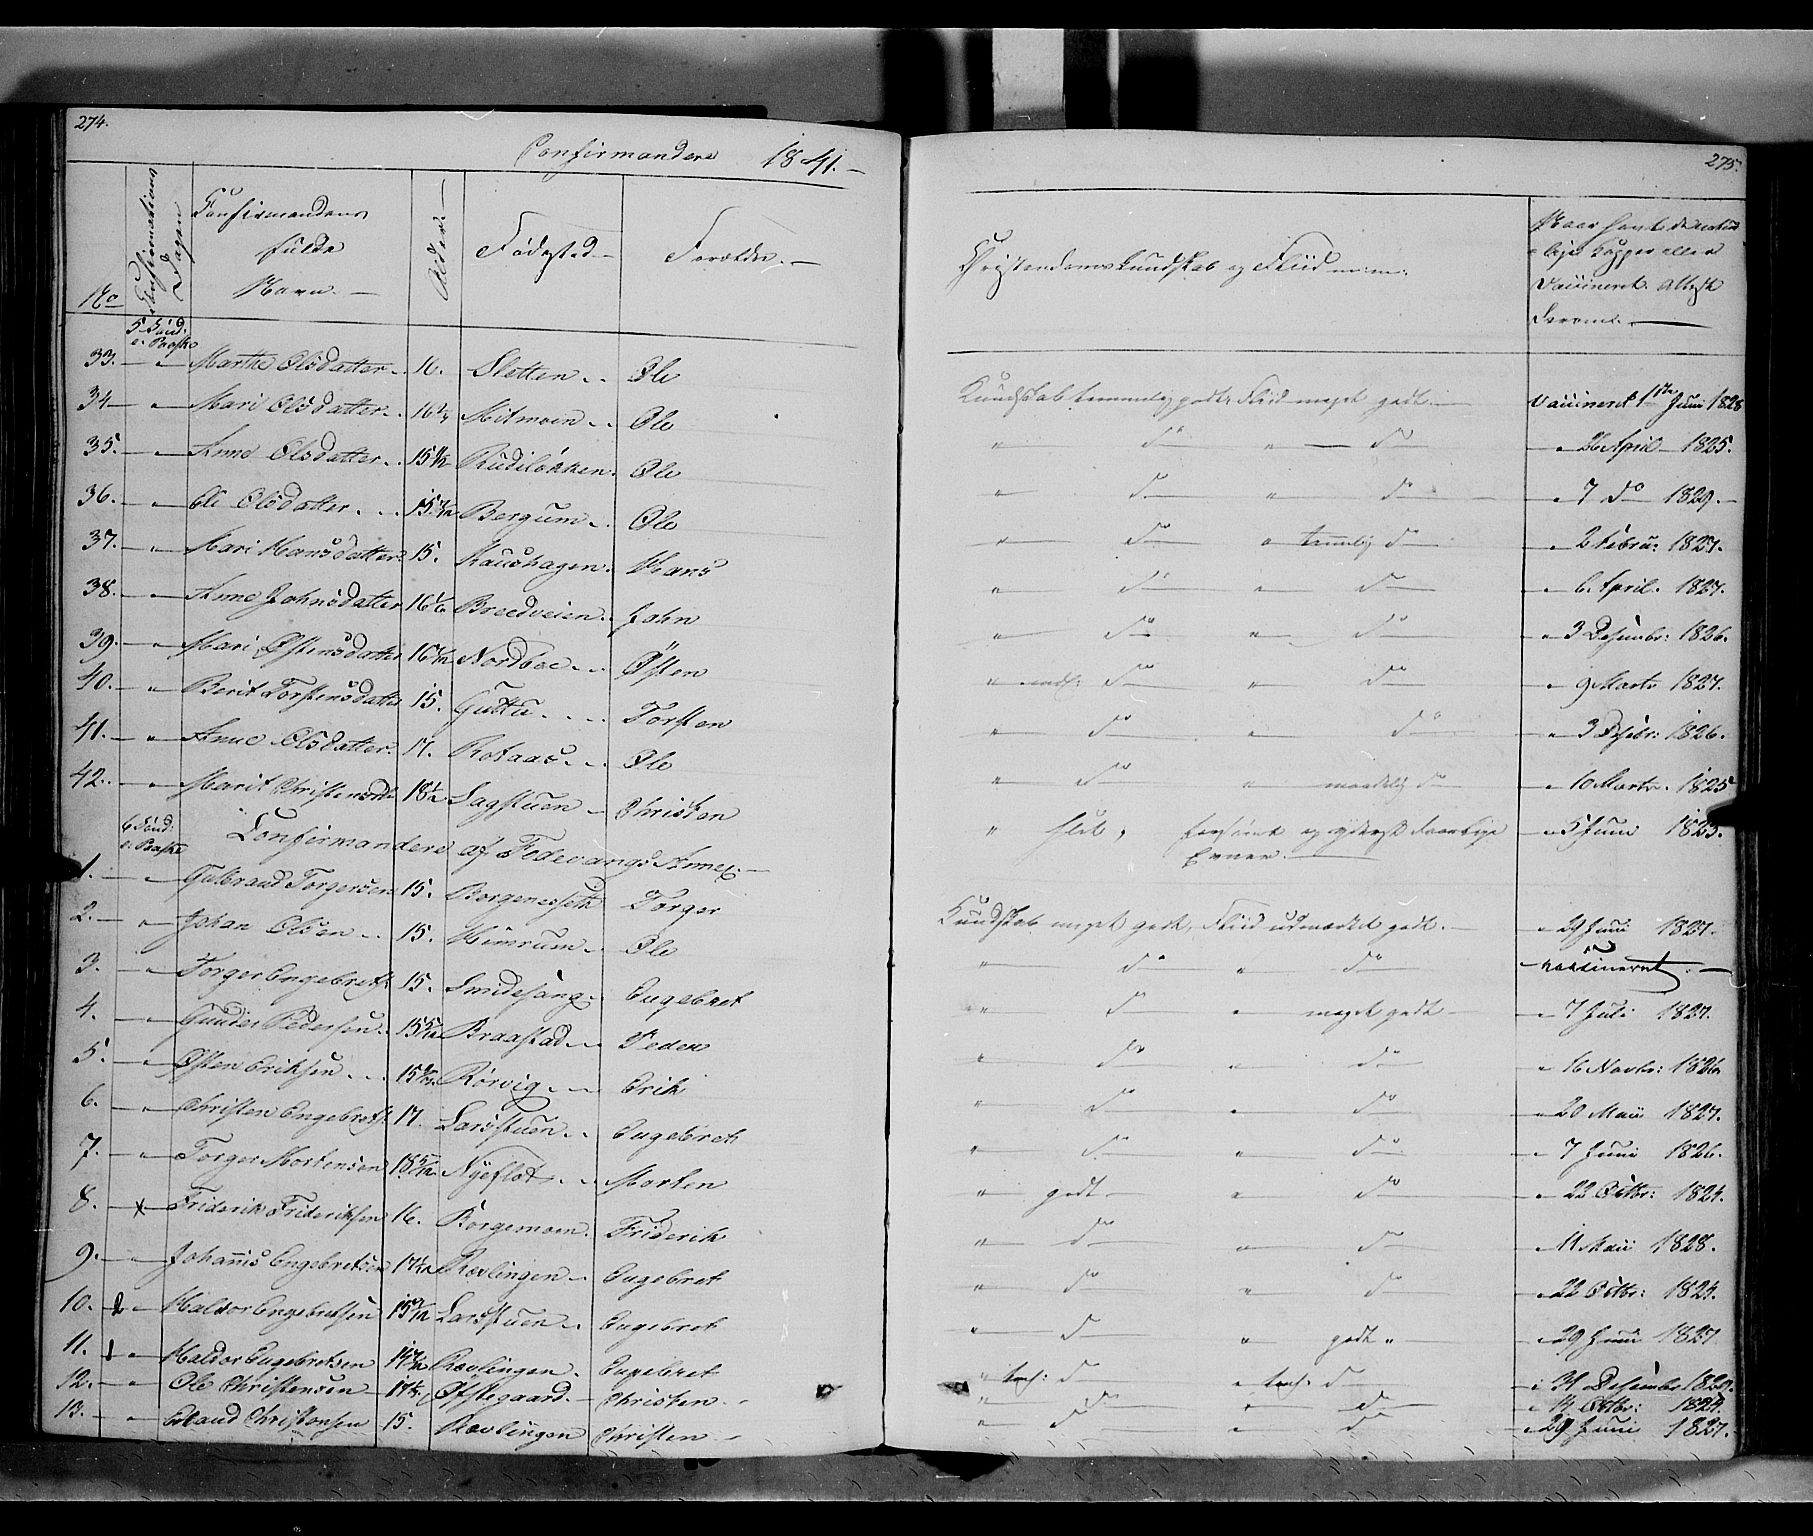 274.
Confirmandere 1841.
No
Confirmations Dagen
Confirmandens fulde Navn.
Alder
Fødested
Forældre.
5 Sønd: e. Paaske
33. Marthe Olsdatter 16. Sletten Ole
34 Mari Olsdatter 16 Mitmoen Ole
35. Anne Olsdatter 15 1/2 Rudiløkken Ole
36. Eli Olsdatter Bergum Ole
37. Mari Hansdatter 15. Haushagen Hans
38. Anne Johnsdatter Breedveien John
39. Mari Østensdatter Nordboe Østen
40. Berit Torstensdatter 15. Guttu Torsten
41. Anne Olsdatter 17. Rotaas Ole
42. Marit Christensdtr 18 1/2 Lagstuen Christen
6 Sønd: e. Paaske
Confirmandere af Fodevangs Annex.
1. Gulbrand Torgersen 15. Borgenesseth Torger
2. Johan Olsen 15. Himrum Ole
3. Torger Engebrets. 15. Smedesang Engebret
4. Gunder Pedersen Braastad Peder
5. Østen Eriksen Rørvig Erik
6. Christen Engebrets. 17. Larsstuen Engebret
7. Torger Mortensen Nyeflot Morten
8. Friderik Frideriksen 16. Borgemoen Friderik
9. Johannis Engebretsen Rævlingen Engebret
10. 2 Haldor Engebretsen Larsstuen Engebret
11. 1 Haldor Engebretsen Rævlingen Engebret
12. Ole Christensen Østegaard Christen
13. Erland Christensen 15. Rævlingen Christen
275.
Christendomskundskab og Fliid m:m:
Naar havt de naturlige Kopper eller Vaccineret. Attest derom.
Kundskab temmelig godt, Fliid meget godt. Vaccineret 1ste Juni 1828
" do " do " 26 April 1825.
" do " do " 7 do 1829.
" do " temmelig do " 2 Febru: 1827.
" do " do " 6 April. 1827.
" do " do " 3 Desembr: 1826.
" do " do " 9 Marts 1827.
" do " do " 3 Desbr: 1826.
" do " maadelig do " 10 Marts. 1825
" slet, forsømt og yderst daarlige Evner. " 5 Juni 1823.
Kundskab meget godt, Fliid udmærket godt. " 29 Juni 1827.
" do " do vaccineret.
" do " meget godt " 7 Juli 1827.
" do " do " 16 Novbr: 1826
" do " do " 20 Maii 1827.
" do " do " 7 Juni 1826.
" godt " do " 22 Octbr: 1824.
" do " do " 11 Maii 1828.
" do " do " 22 Octbr: 1824.
" do " godt " " 29 Juni 1827
" tem: do " tem: do " 31 Desembr
" do " do " 14 Octbr: 1824.
" do " do " 29 Juni 1827.